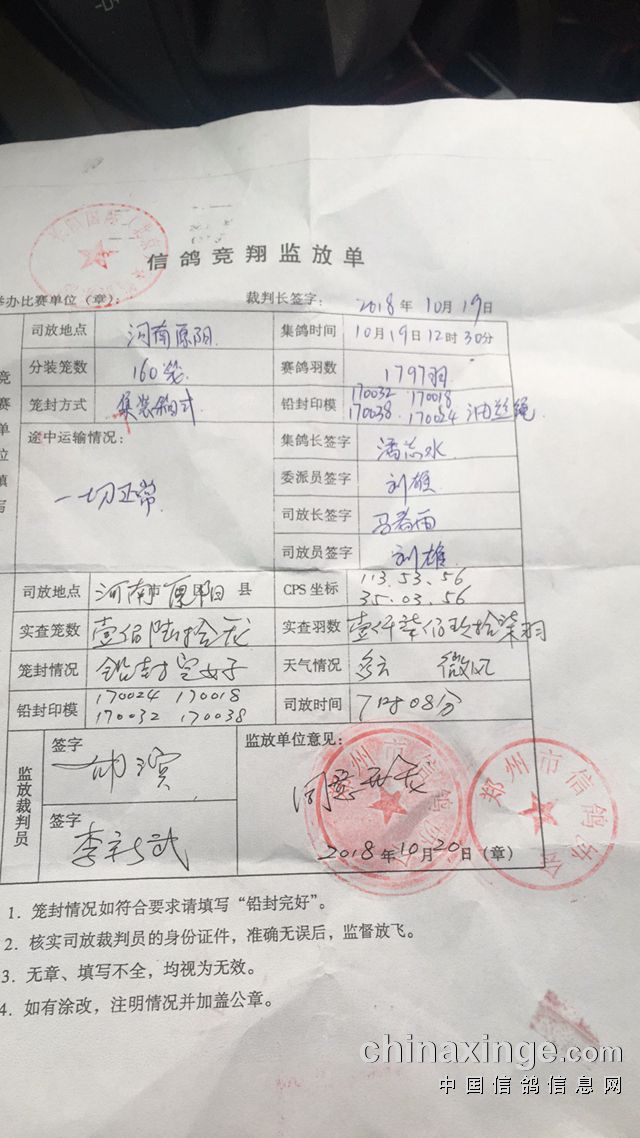 信鸽竞翔监放单
举办比赛单位（章）： 裁判长签字： 2018年10月19日
司放地点 河南原阳. 集鸽时间 10月19日12时30分
分装笼数 160笼 赛鸽羽数 1797羽
笼封方式 集装箱式 铅封印模 170032 170018
170038. 170024 油丝绳.
途中运输情况： 一切正常
集鸽长签字
委派员签字 刘雄
司放长签字
司放员签字 刘雄
司放地点 河南市原阳县 CPS 坐标 113.53.56
35.03.56
实查笼数 壹佰陆拾笼 实查羽数 壹仟柒佰玖拾柒羽
笼封情况 铅封完好 天气情况 多云 微风
铅封印模 170024 170018
170032 170038
司放时间 7时08分
监放裁判员
签字
签字 李新武
监放单位意见：
同意开笼
2018年10月20日（章）
郑州市信鸽协会
郑州市信鸽协会
1. 笼封情况如符合要求请填写“铅封完好”。
2. 核实司放裁判员的身份证件，准确无误后，监督放飞。
3. 无章、填写不全，均视为无效。
4. 如有涂改，注明情况并加盖公章。
chinaxinge.com
中国信鸽信息网